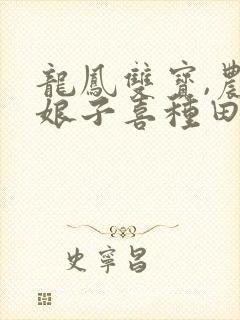 龍鳳雙寶,農
娘子喜種田
史寧昌